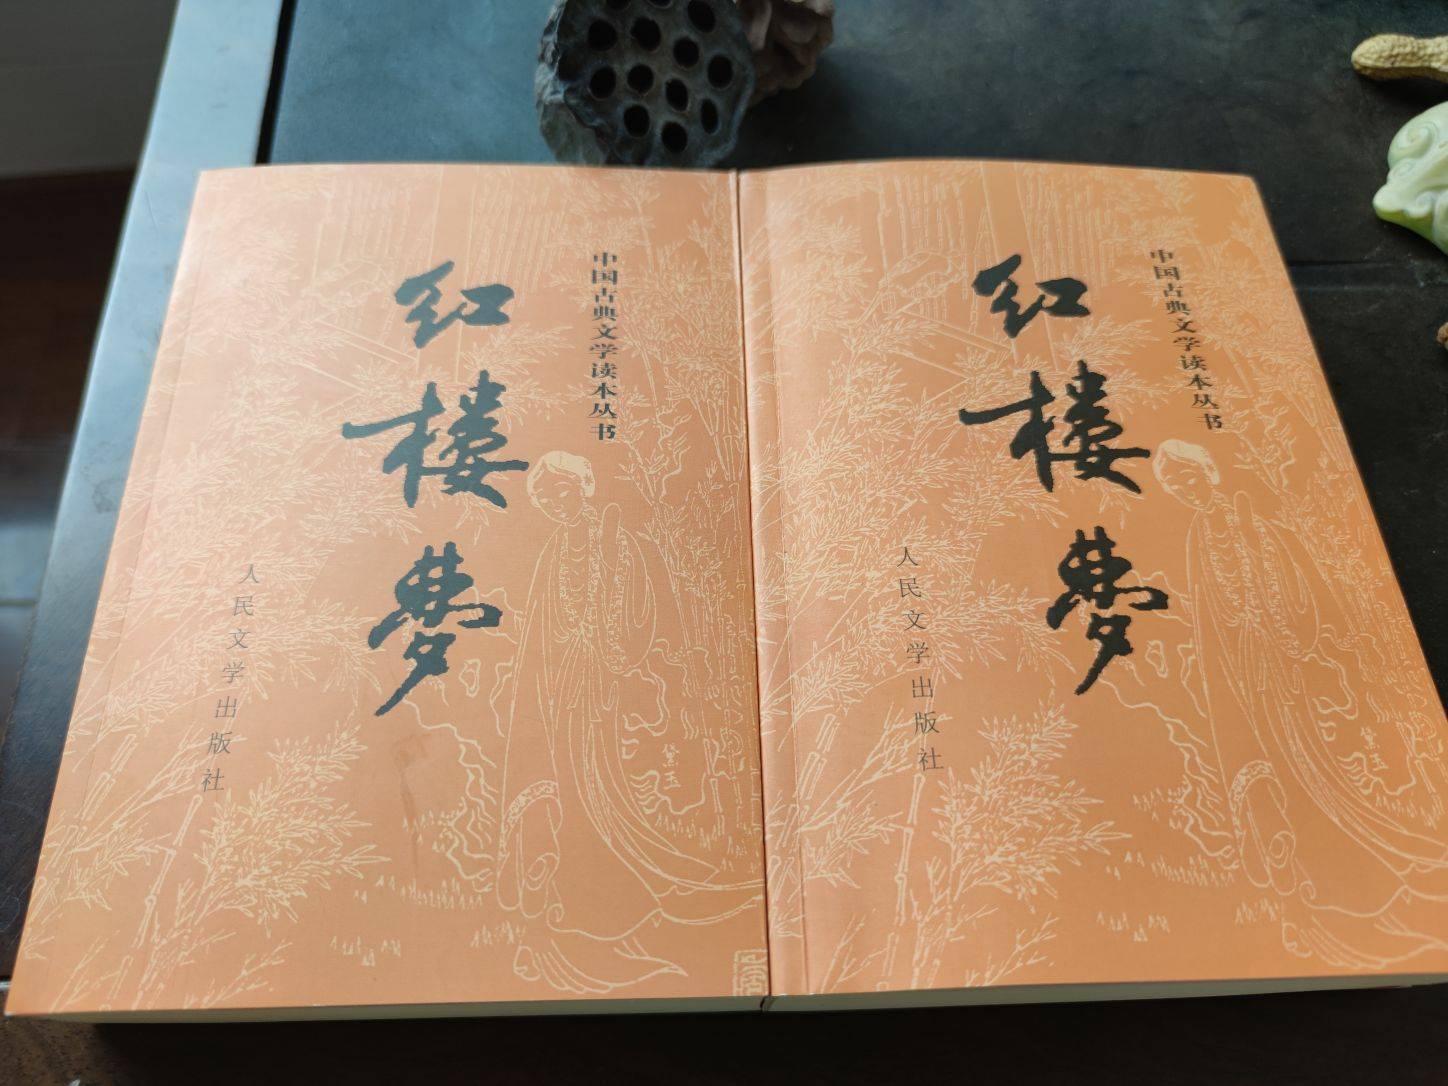 中国古典文学读本丛书
红楼梦
人民文学出版社
黛玉
中国古典文学读本丛书
红楼梦
人民文学出版社
黛玉